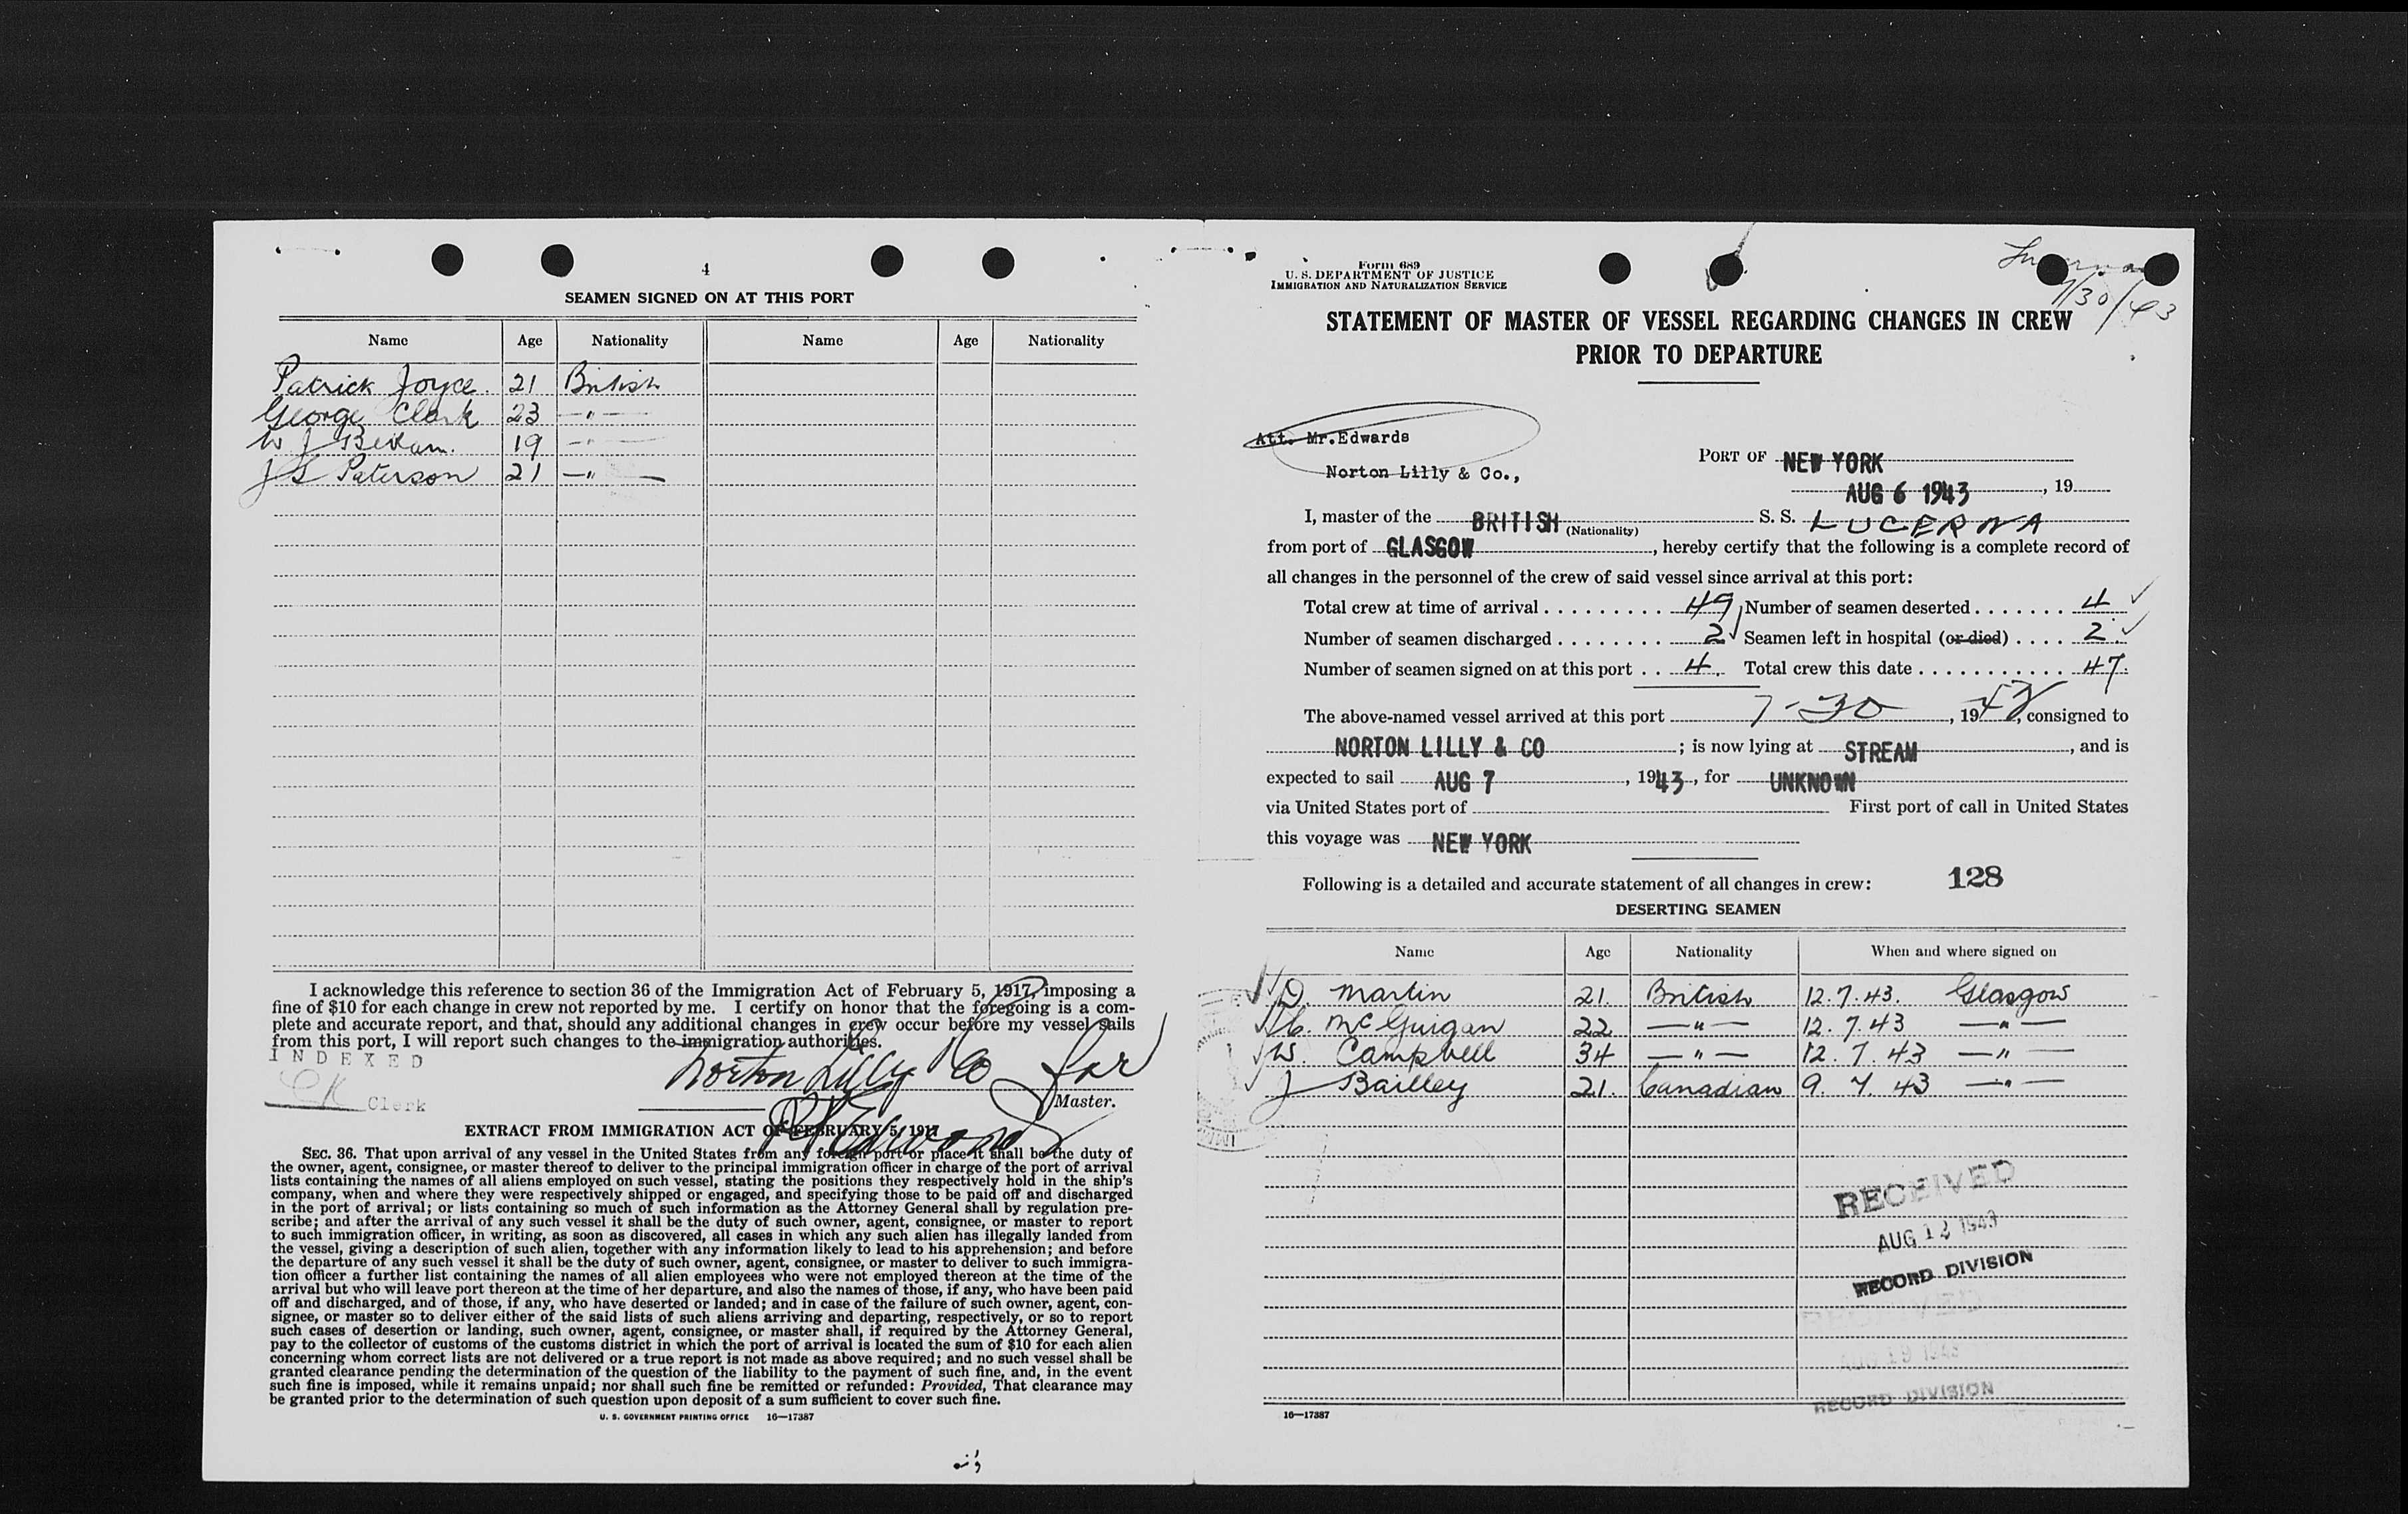 4
SEAMEN SIGNED ON AT THIS PORT
Name Age Nationality Name Age Nationality
Patrick Joyce. 21 British
George Clark 23 — " —
W J 19 — " —
J S Paterson 21 — " —
I acknowledge this reference to section 36 of the Immigration Act of February 5, 1917, imposing a
fine of $10 for each change in crew not reported by me. I certify on honor that the foregoing is a com-
plete and accurate report, and that, should any additional changes in crew occur before my vessel sails
from this port, I will report such changes to the immigration authorities.
INDEXED
CK Clerk
Norton Lilly & Co for
Master.
Edwards
EXTRACT FROM IMMIGRATION ACT OF FEBRUARY 5, 1917
SEC. 36. That upon arrival of any vessel in the United States from any foreign port or place it shall be the duty of
the owner, agent, consignee, or master thereof to deliver to the principal immigration officer in charge of the port of arrival
lists containing the names of all aliens employed on such vessel, stating the positions they respectively hold in the ship's
company, when and where they were respectively shipped or engaged, and specifying those to be paid off and discharged
in the port of arrival; or lists containing so much of such information as the Attorney General shall by regulation pre-
scribe; and after the arrival of any such vessel it shall be the duty of such owner, agent, consignee, or master to report
to such immigration officer, in writing, as soon as discovered, all cases in which any such alien has illegally landed from
the vessel, giving a description of such alien, together with any information likely to lead to his apprehension; and before
the departure of any such vessel it shall be the duty of such owner, agent, consignee, or master to deliver to such immigra-
tion officer a further list containing the names of all alien employees who were not employed thereon at the time of the
arrival but who will leave port thereon at the time of her departure, and also the names of those, if any, who have been paid
off and discharged, and of those, if any, who have deserted or landed; and in case of the failure of such owner, agent, con-
signee, or master so to deliver either of the said lists of such aliens arriving and departing, respectively, or so to report
such cases of desertion or landing, such owner, agent, consignee, or master shall, if required by the Attorney General,
pay to the collector of customs of the customs district in which the port of arrival is located the sum of $10 for each alien
concerning whom correct lists are not delivered or a true report is not made as above required; and no such vessel shall be
granted clearance pending the determination of the question of the liability to the payment of such fine, and, in the event
such fine is imposed, while it remains unpaid; nor shall such fine be remitted or refunded: Provided, That clearance may
be granted prior to the determination of such question upon deposit of a sum sufficient to cover such fine.
U. S. GOVERNMENT PRINTING OFFICE 16—17387
Form 689
U. S. DEPARTMENT OF JUSTICE
IMMIGRATION AND NATURALIZATION SERVICE
7/30/43
STATEMENT OF MASTER OF VESSEL REGARDING CHANGES IN CREW
PRIOR TO DEPARTURE
Att. Mr.Edwards
Norton Lilly & Co.,
PORT OF NEW YORK
AUG 6 1943, 19
I, master of the BRITISH (Nationality) S. S. LUCERNA
from port of GLASGOW, hereby certify that the following is a complete record of
all changes in the personnel of the crew of said vessel since arrival at this port:
Total crew at time of arrival . . . . . . . . . . 49 Number of seamen deserted . . . . . . . 4
Number of seamen discharged . . . . . . . . 2 Seamen left in hospital (or died) . . . . 2
Number of seamen signed on at this port . . 4. Total crew this date . . . . . . . . . . . . 47.
The above-named vessel arrived at this port 7-30, 1943, consigned to
NORTON LILLY & CO ; is now lying at STREAM, and is
expected to sail AUG 7, 1943, for UNKNOWN
via United States port of First port of call in United States
this voyage was NEW YORK
Following is a detailed and accurate statement of all changes in crew: 128
DESERTING SEAMEN
Name Age Nationality When and where signed on
D. Martin 21. British 12.7.43. Glasgow
C. McGuigan 22 — " — 12.7.43 — " —
W. Campbell 34 — " — 12.7.43 — " —
J Bailley 21. Canadian 9.7.43 — " —
RECEIVED
AUG 12 1943
RECORD DIVISION
RECEIVED
AUG 19 1943
RECORD DIVISION
16—17387